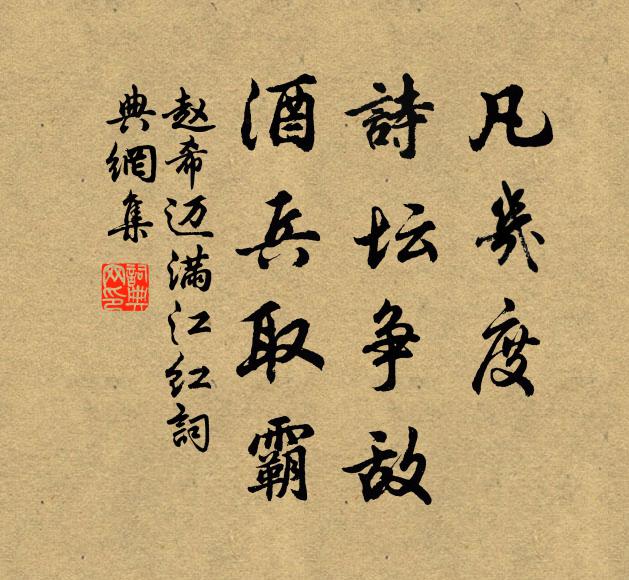 凡幾度
詩坛争敌
酒兵取霸
赵希迈满江红詞
典網集
詞典网印